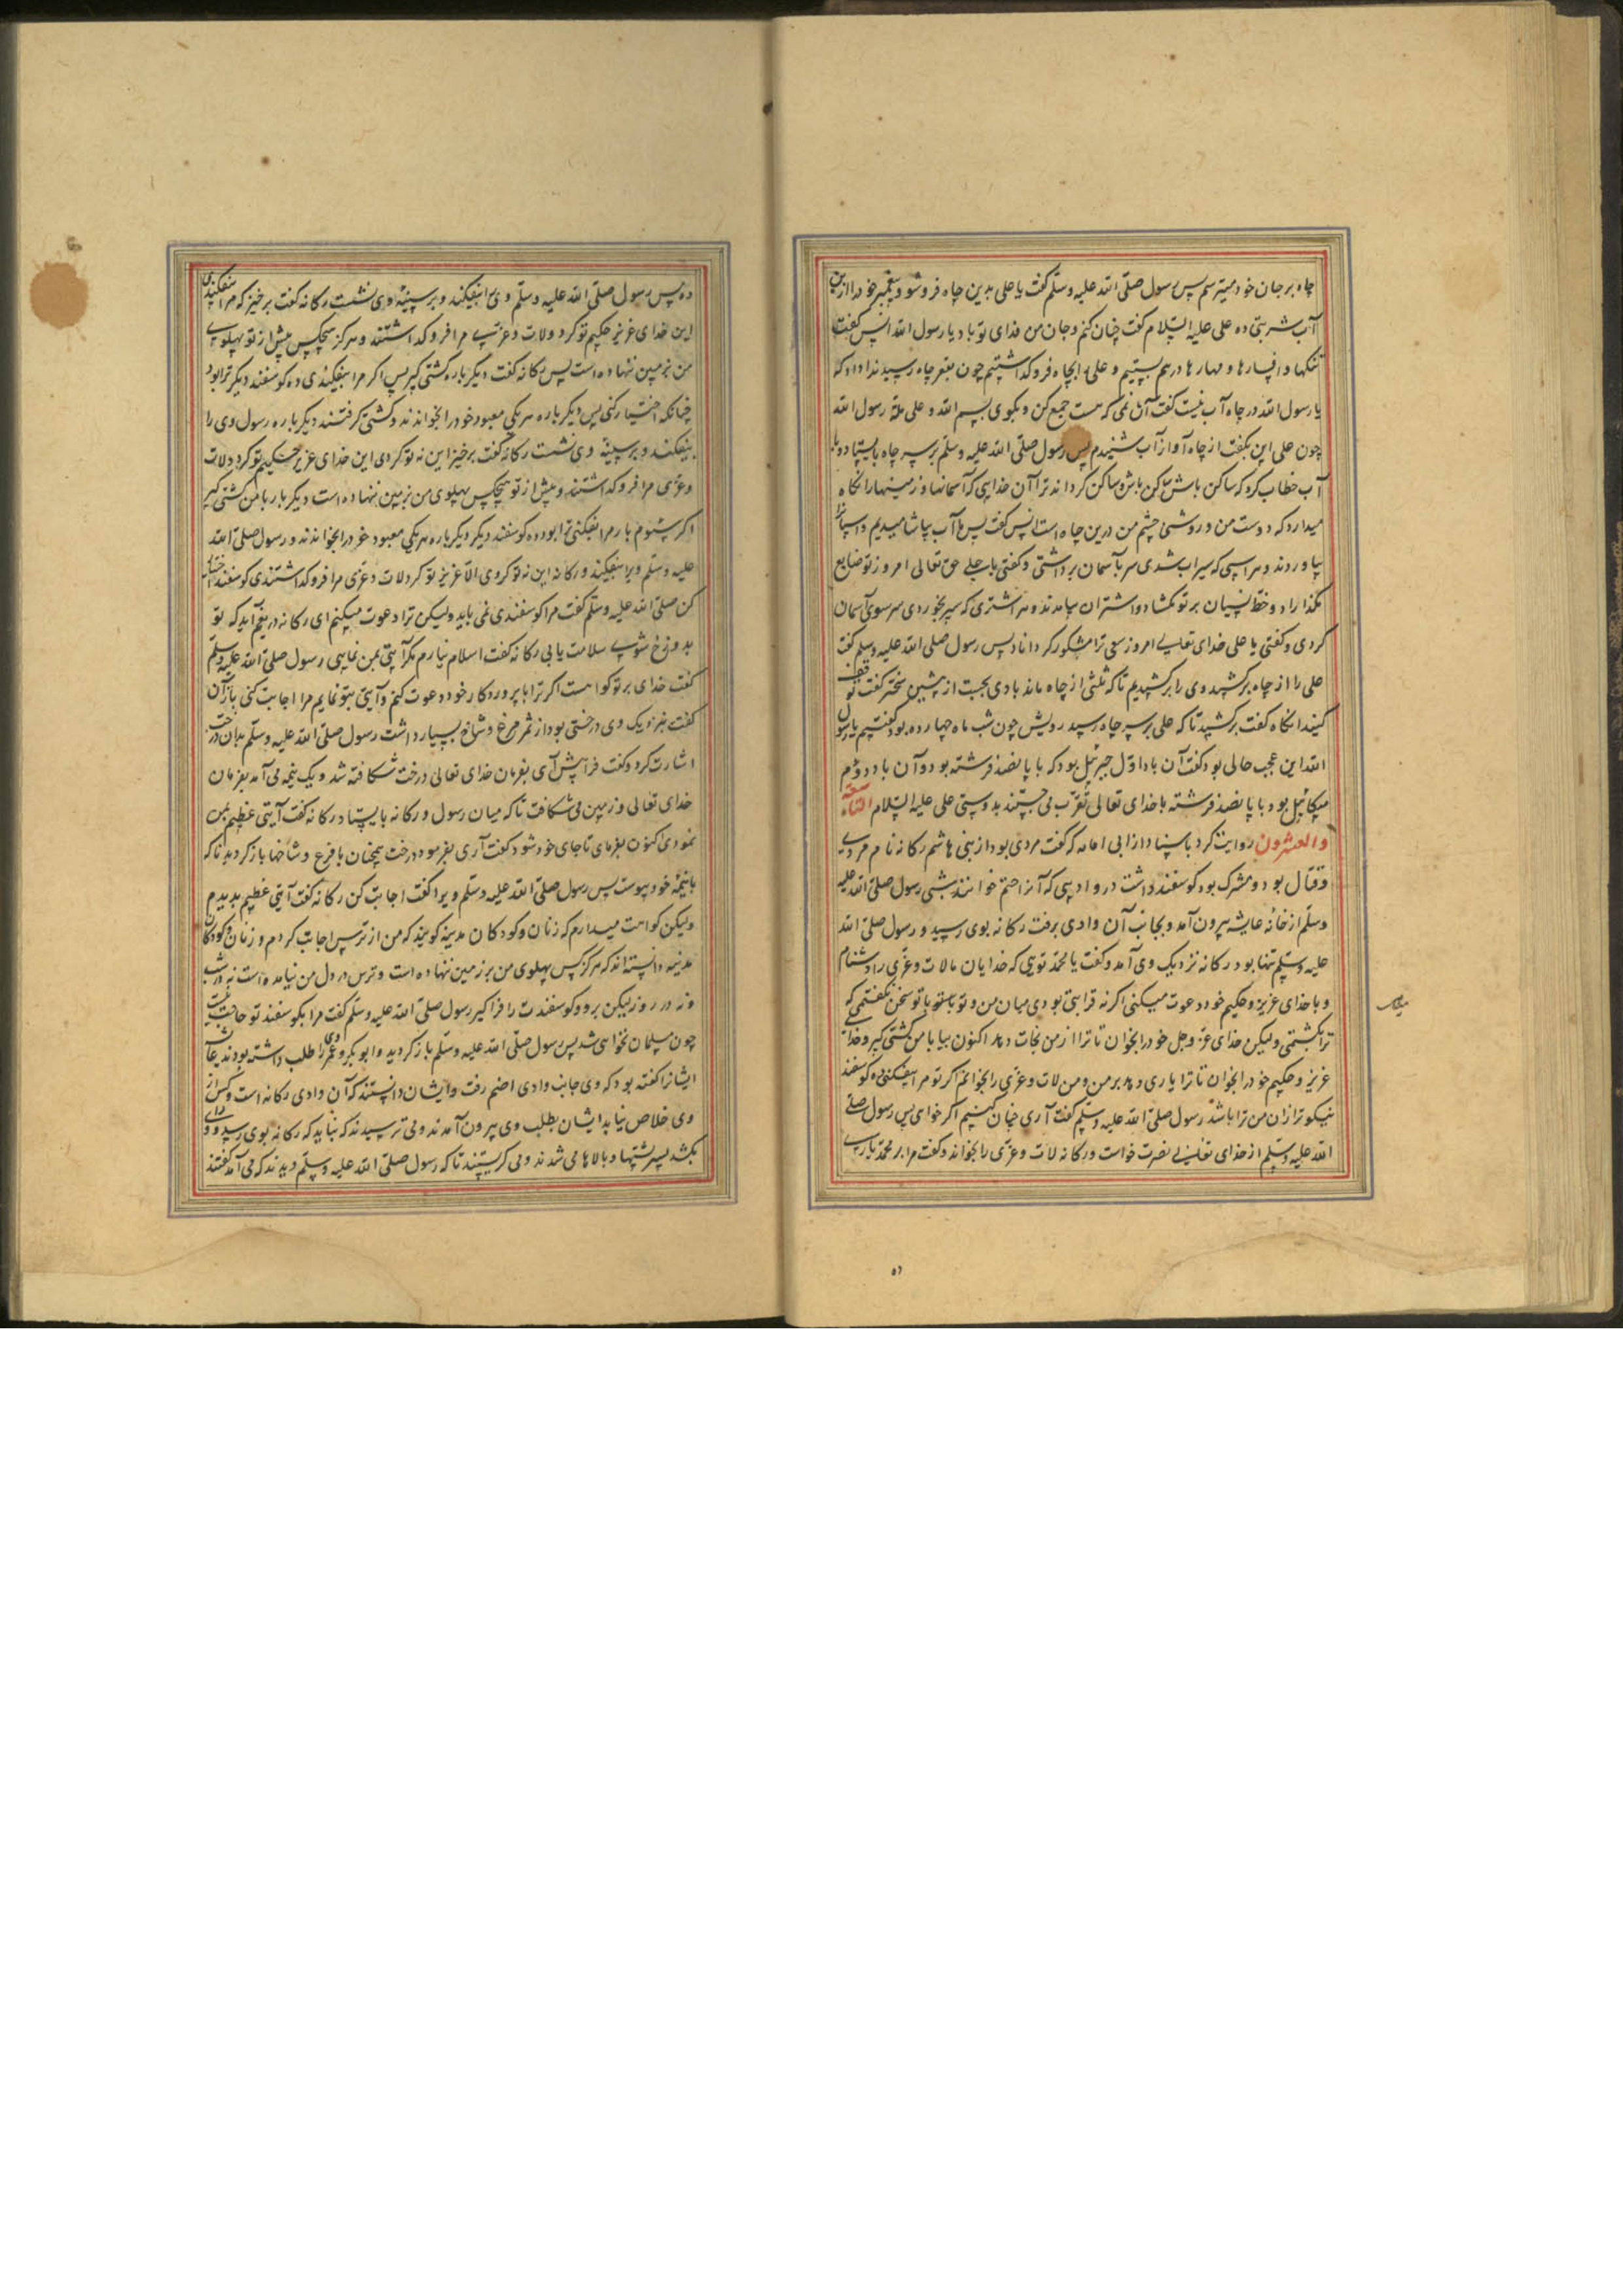 چاه بر جان خود میترسم پس رسول صلّی الله علیه وسلّم کفت یا علی بدین چاه فرو شو و پیغمبر خود را ازین
آب شربتی ده علی علیه السّلام کفت چنان کنم و جان من فدای تو باد یا رسول الله انس کفت
تنکها و افسارها و مهارها در هم بستیم و علی را بچاه فرو کذاشتیم چون بقعر چاه رسید ندا داد که
یا رسول الله در چاه آب نیست کفت آن نمی که هست جمع کن و بکوی بسم الله و علی ملّة رسول الله
چون علی این بکفت از چاه آواز آب شنیدم پس رسول صلّی الله علیه وسلّم بر سر چاه بایستاد و با
آب خطاب کرد که ساکن باش ساکن باش ساکن کرداند ترا آن خدایی که آسمانها و زمینها را نکاه
میدارد که دوست من و روشنی چشم من درین چاه است انس کفت پس ما آب بیاشامیدیم و اسپانرا
بیاوردند و هر اسپی که سیراب شدی سر بآسمان برداشتی و کفتی یا علی حق تعالی امروز تو ضایع
مکذاراد و خطّ نسیان بر تو مکشاد و اشتران بیامدند و هر اشتری که سیر بخوردی سر سوی آسمان
کردی و کفتی یا علی خدای تعالی امروز سعی ترا مشکور کرداناد پس رسول صلی الله علیه وسلم کفت
علی را از چاه برکشید وی را برکشیدیم تا که ثلثی از چاه ماند بادی بجست از پیشین سختر کفت توقف
کنید انکاه کفت برکشید تا که علی بر سر چاه رسید رویش چون شب ماه چهارده بود کفتیم یا رسول
الله این عجب حالی بود کفت آن باد اوّل جبرئیل بود که با پانصد فرشته بود و آن باد دوّم
میکائیل بود با پانصد فرشته با خدای تعالی تقرّب می جستند بدوستی علی علیه السّلام التاسعة
والعشرون روایت کرد باسناد از ابی امامه که کفت مردی بود از بنی هاشم رکانه نام مردی
و قتال بود و مشرک بود کوسفند داشت در وادیی که آنرا اضم خوانند شبی رسول صلّی الله علیه
وسلّم از خانه عایشه بیرون آمد و بجانب آن وادی برفت رکانه بوی رسید و رسول صلّی الله
علیه وسلّم تنها بود رکانه نزدیک وی آمد و کفت یا محمّد تویی که خدایان ما لات و عزّی را دشنام
و با خدای عزیز و حکیم خود دعوت میکنی اکر نه قرابتی بودی میان من و تو با تو سخن نکفتمی که
ترا بکشتمی و لیکن خدای عزّ و جل خود را بخوان تا ترا از من نجات دهد اکنون بیا با من کشتی کیر و خدای
عزیز و حکیم خود را بخوان تا ترا یاری دهد بر من و من لات و عزّی را بخوانم اکر تو مرا بیفکنی ده کوسفند
نیکو ترا از ان من ترا باشد رسول صلّی الله علیه وسلّم کفت آری چنان کنیم اکر خواهی پس رسول صلّی
الله علیه وسلّم از خدای تعالی نصرت خواست و رکانه لات و عزّی را بخواند و کفت مرا بر محمّد یاری
ده پس رسول صلّی الله علیه وسلّم وی را بیفکند و بر سینهٔ وی نشست رکانه کفت برخیز که مرا نیفکندی
این خدای عزیز حکیم تو کرد و لات و عزّی مرا فرو کذاشتند و هرکز هیچکس پیش از تو پهلوی
من بر زمین ننهاده است پس رکانه کفت دیکر باره کشتی کیر پس اکر مرا بیفکندی ده کوسفند دیکر ترا بود
چنانکه اختیار کنی پس دیکر باره هر یکی معبود خود را بخواندند و کشتی کرفتند دیکر باره رسول وی را
بیفکند و بر سینهٔ وی نشست رکانه کفت برخیز این نه تو کردی این خدای عزیز حکیم تو کرد و لات
و عزّی مرا فرو کذاشتند و پیش از تو هیچکس پهلوی من بر زمین ننهاده است دیکر بار با من کشتی کیر
اکر سئوم بار مرا بیفکنی ترا بود ده کوسفند دیکر دیکر باره هر یکی معبود خود را بخواندند و رسول صلّی الله
علیه وسلّم ویرا بیفکند و رکانه این نه تو کردی الّا عزیز تو کرد لات و عزّی مرا فرو کذاشتندی کوسفند اختیار
کن صلّی الله علیه وسلّم کفت مرا کوسفندی نمی باید و لیکن ترا دعوت میکنم ای رکانه دریغم آید که تو
بدوزخ شوی سلامت یابی رکانه کفت اسلام نیارم مکر آیتی بمن نمایی رسول صلّی الله علیه وسلّم
کفت خدای بر تو کواهست اکر ترا با پروردکار خود دعوت کنم و آیتی بتو نمایم مرا اجابت کنی بآن
کفت بنزدیک وی درختی بود از ثمر فرع و شاخ بسیار داشت رسول صلّی الله علیه وسلّم بدان درخت
اشارت کرد و کفت فرا پیش آی بفرمان خدای تعالی درخت شکافته شد و یک نیمه می آمد بفرمان
خدای تعالی و زمین می شکافت تا که میان رسول و رکانه بایستاد رکانه کفت آیتی عظیم بمن
نمودی اکنون بفرمای تا جای خود شود کفت آری بفرمود درخت همچنان با فرع و شاخها باز کردید تا که
با نیمهٔ خود پیوست پس رسول صلّی الله علیه وسلّم ویرا کفت اجابت کن رکانه کفت آیتی عظیم بدیدم
ولیکن کراهت میدارم که زنان و کودکان مدینه کویند که من از ترس اجابت کردم و زنان و کودکان
مدینه دانسته اند که هرکز کس پهلوی من بر زمین ننهاده است و ترس در دل من نیامده است نه در شب
و نه در روز لیکن برو و کوسفندت را فرا کیر رسول صلّی الله علیه وسلّم کفت مرا بکوسفند تو حاجت نیست
چون مسلمان نخواهی شد پس رسول صلّی الله علیه وسلّم باز کردید و ابو بکر و عمر وی را طلب داشته بودند عایشه
ایشانرا کفته بود که وی جانب وادی اضم رفت و ایشان دانستند که آن وادی رکانه است و کس از
وی خلاص نیابد ایشان بطلب وی بیرون آمدند و می ترسیدند که نباید که رکانه بوی رسید و ویرا
بکشد پس بر پشتها و بالاها می شدند و می کریستند تا که رسول صلّی الله علیه وسلّم دیدند که می آمد کفتند